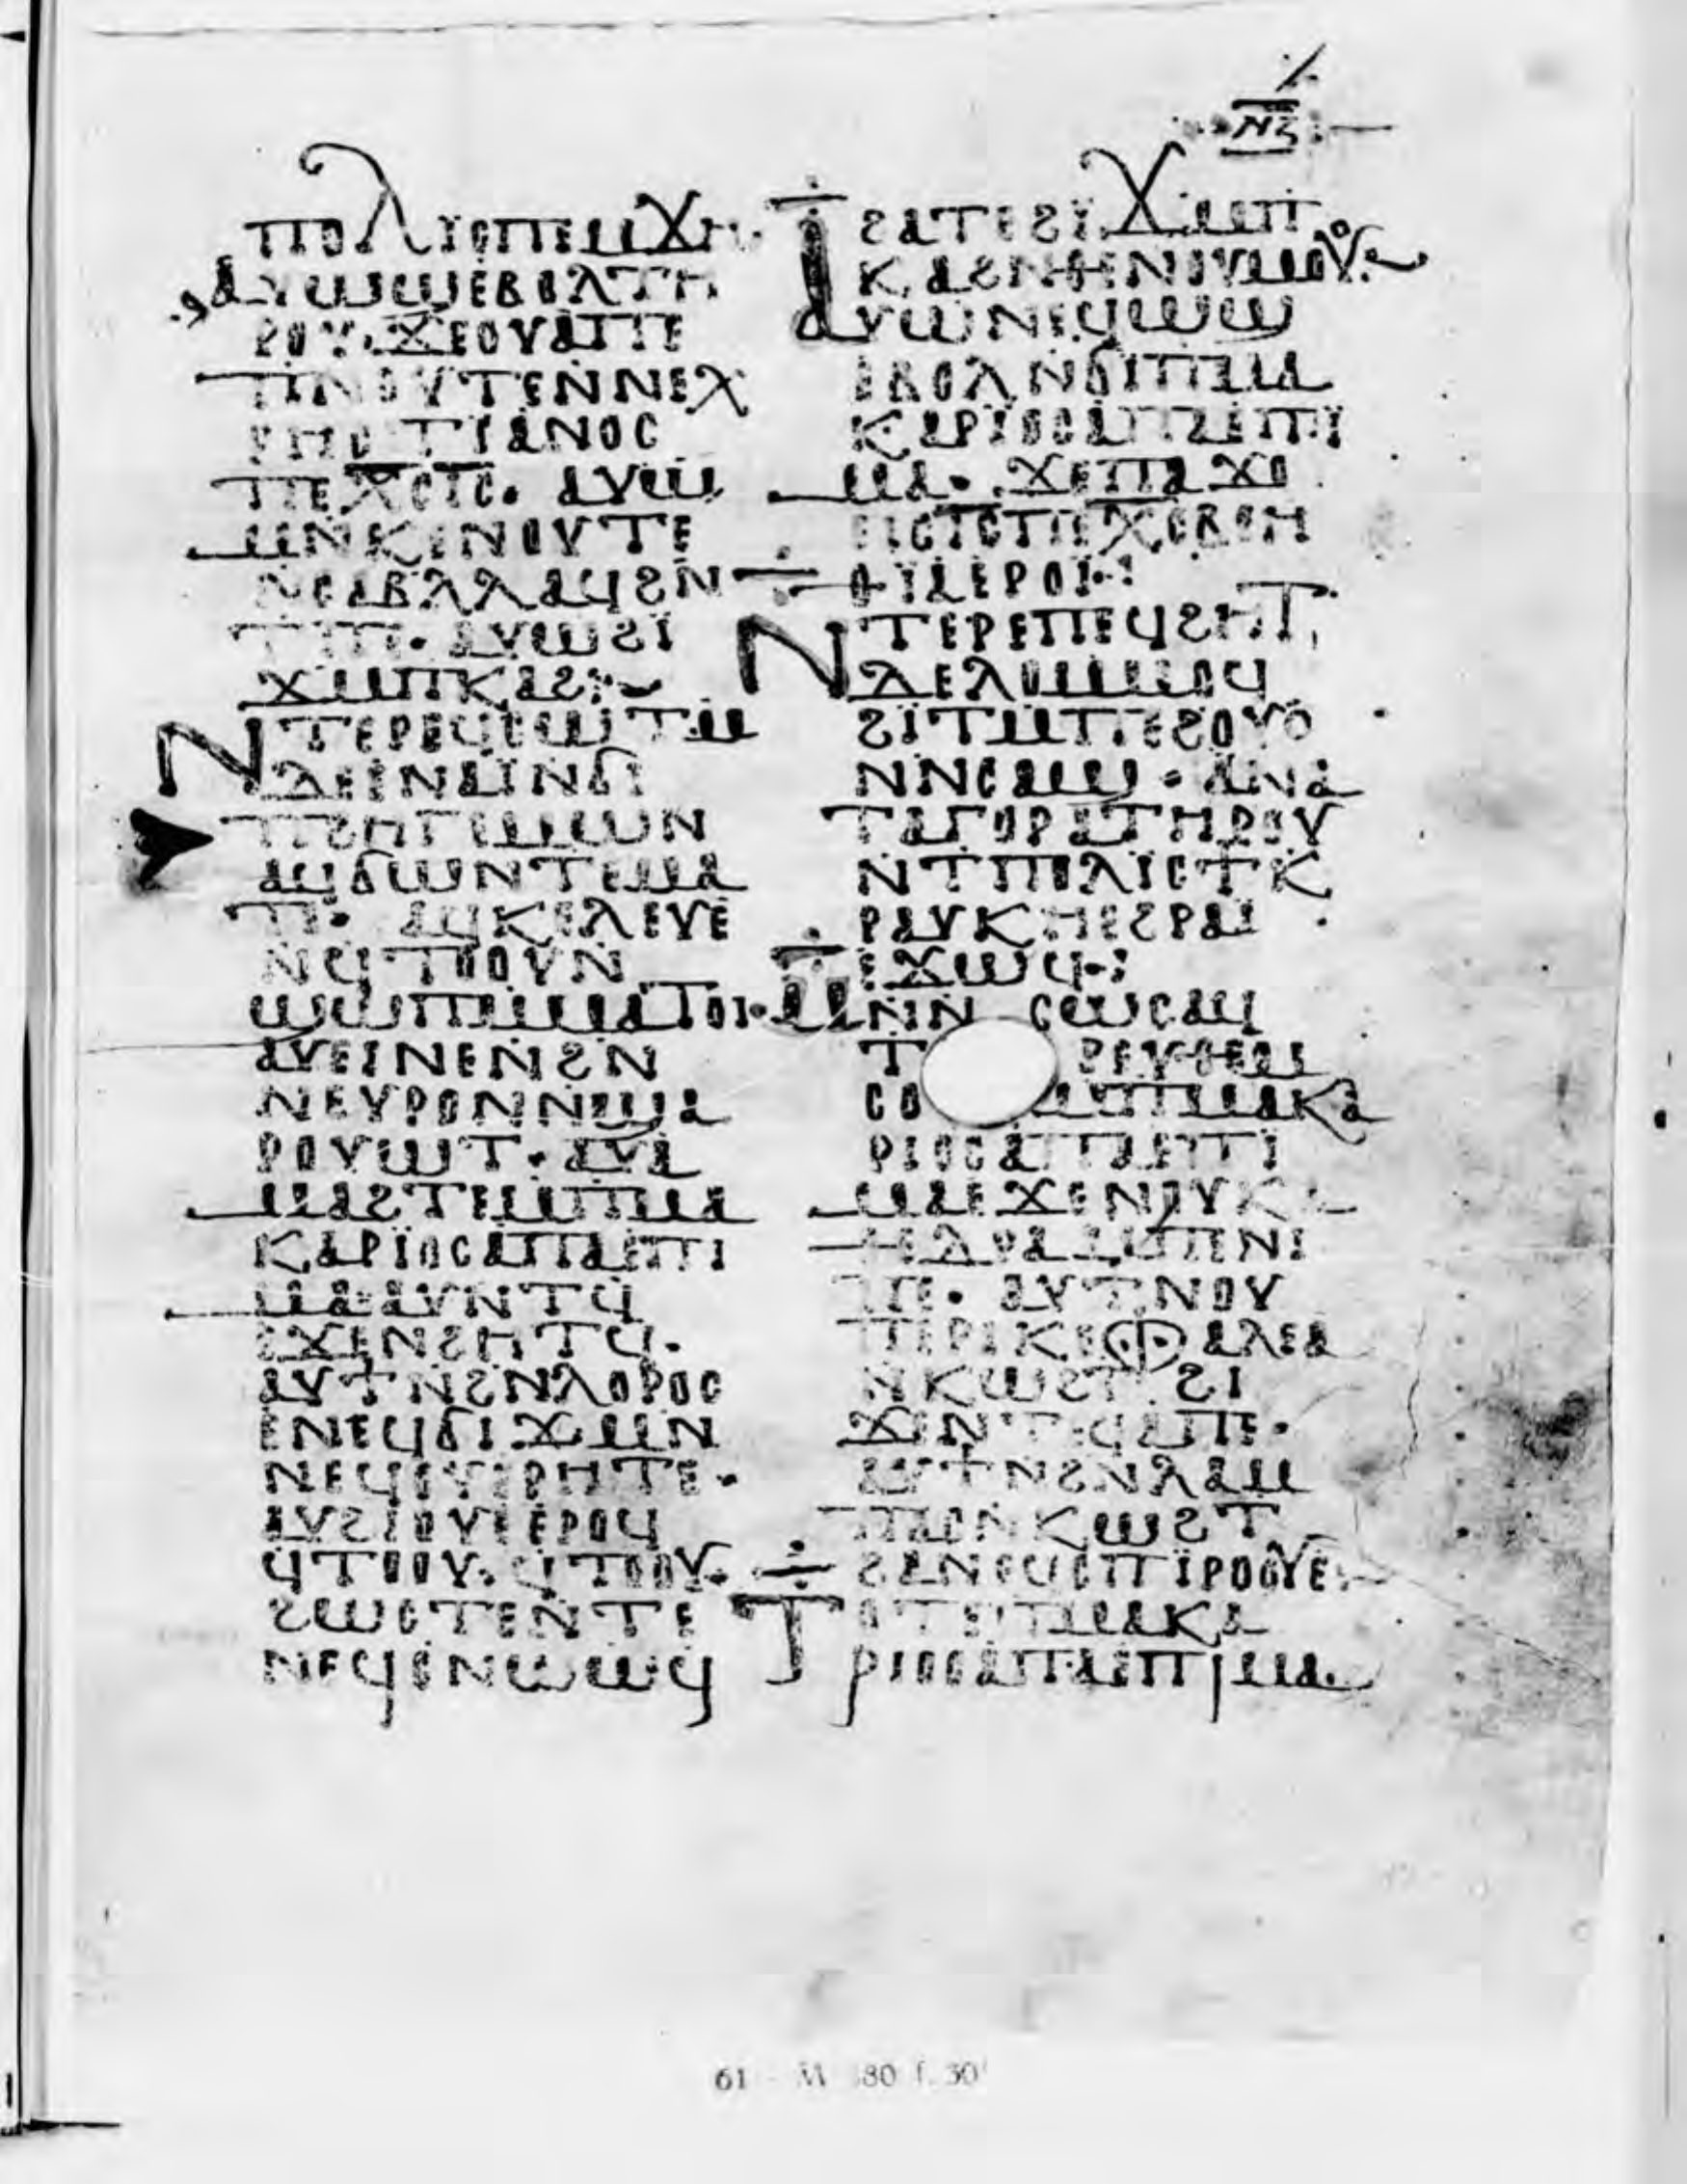 ⲛ︤ⲍ︥
ⲡⲟⲗⲓⲥⲡⲉⲙϫⲏ
ⲁⲩⲱϣⲉⲃⲟⲗⲧⲏ
ⲣⲟⲩ· ϫⲉⲟⲩⲁⲡⲉ
ⲡⲛⲟⲩⲧⲉⲛⲛⲉⲭ
ⲣⲏⲥⲧⲓⲁⲛⲟⲥ
ⲡⲉⲭⲥⲓⲥ· ⲁⲩⲱ
ⲙⲛⲕⲉⲛⲟⲩⲧⲉ
ⲛⲥⲁⲃⲗⲗⲁϥϩⲛ
ⲧⲡⲉ· ⲁⲩⲱϩⲓ
ϫⲙⲡⲕⲁϩ:
ⲛⲧⲉⲣⲉϥⲥⲱⲧⲙ
ⲇⲉⲉⲛⲁⲓⲛϭⲓ
ⲡϩⲏⲅⲉⲙⲱⲛ
ⲁϥϭⲱⲛⲧⲉⲙⲁ
ⲧⲉ· ⲁϥⲕⲉⲗⲉⲩⲉ
ⲛϥⲧⲟⲟⲩⲛ
ϣⲱⲡⲙⲙⲁⲧⲟⲓ·
ⲁⲩⲉⲓⲛⲉⲛϩⲛ
ⲛⲉⲩⲣⲟⲛⲛϣⲁ
ⲣⲟⲩⲱⲧ· ⲁⲩⲁ
ⲙⲁϩⲧⲉⲙⲡⲙⲁ
ⲕⲁⲣⲓⲟⲥⲁⲡⲁⲉⲡⲓ
ⲙⲁⲁⲩⲛⲧϥ
ⲉϫⲉⲛϩⲏⲧϥ·
ⲁⲩϯⲛϩⲛⲗⲟⲣⲟⲥ
ⲉⲛⲉϥϭⲓϫⲙⲛ
ⲛⲉϥⲟⲩⲉⲣⲏⲧⲉ·
ⲁⲩϩⲓⲟⲩⲉⲉⲣⲟϥ
ϥⲧⲟⲟⲩ· ϥⲧⲟⲟⲩ·
ϩⲱⲥⲧⲉⲛⲧⲉ
ⲛⲉϥⲥⲛⲱⲱϥ
ϩⲁⲧⲉϩⲓϫⲙⲡ
ⲕⲁϩⲛⲑⲉⲛⲟⲩⲙⲟⲟⲩ
ⲁⲩⲱⲛⲉϥⲱϣ
ⲉⲃⲟⲗⲛϭⲓⲡⲙⲁ
ⲕⲁⲣⲓⲟⲥⲁⲡⲁⲉⲡⲓ
ⲙⲁ· ϫⲉⲡⲁϫⲟ
ⲉⲓⲥⲓⲥⲡⲉⲭⲥⲃⲟⲏ
ⲑⲓⲁⲉⲣⲟⲓ·:
ⲛⲧⲉⲣⲉⲡⲉϥϩⲏⲧ
ⲇⲉⲗⲟⲙⲙⲟϥ
ϩⲓⲧⲙⲡⲉϩⲟⲩⲟ
ⲛⲛⲥⲁϣ· ⲁⲛⲁ
ⲧⲁⲅⲟⲣⲁⲧⲏⲣⲟⲩ
ⲛⲧⲡⲟⲗⲓⲥϯⲕ
ⲣⲁⲩⲕⲏⲉϩⲣⲁⲓ
ⲉϫⲱϥ·:
ⲙⲛⲛ ⲥⲱⲥⲁϥ
ⲧ ⲣⲉⲩⲑⲉⲙ
ⲥⲟ ⲙⲡⲙⲁⲕⲁ
ⲣⲓⲟⲥⲁⲡⲁⲉⲡⲓ
ⲙⲁⲉϫⲉⲛⲟⲩⲕⲁ
ⲑⲏⲇⲣⲁⲙⲡⲉⲛⲓ
ⲡⲉ· ⲁⲩϯⲛⲟⲩ
ⲡⲉⲣⲓⲕⲉⲫⲁⲗⲉⲁ
ⲛⲕⲱϩⲧ ϩⲓ
ϫⲛⲧⲉϥⲁⲡⲉ·
ⲁⲩϯⲛϩⲛⲗⲁⲙ
ⲡⲁⲥⲛⲕⲱϩⲧ
ϩⲁⲛⲉϥⲥⲡⲓⲣⲟⲟⲩⲉ
ⲧⲟⲧⲉⲡⲙⲁⲕⲁ
ⲣⲓⲟⲥⲁⲡⲁⲉⲡⲓⲙⲁ·
61 M 580 f. 30